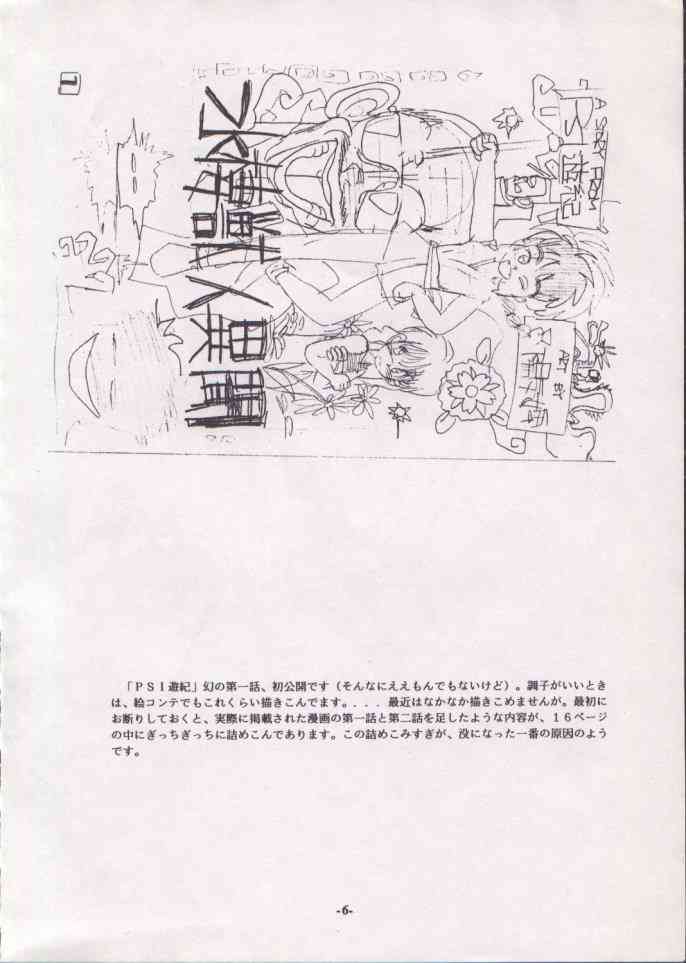 1
水滸獣人異聞
A STORY FROM
PSI遊紀
ART BY
「PSI遊紀」幻の第一話、初公開です（そんなにええもんでもないけど）。調子がいいとき
は、絵コンテでもこれくらい描きこんでます。．．．最近はなかなか描きこめませんが。最初に
お断りしておくと、実際に掲載された漫画の第一話と第二話を足したような内容が、16ページ
の中にぎっちぎっちに詰めこんであります。この詰めこみすぎが、没になった一番の原因のよう
です。
-6-